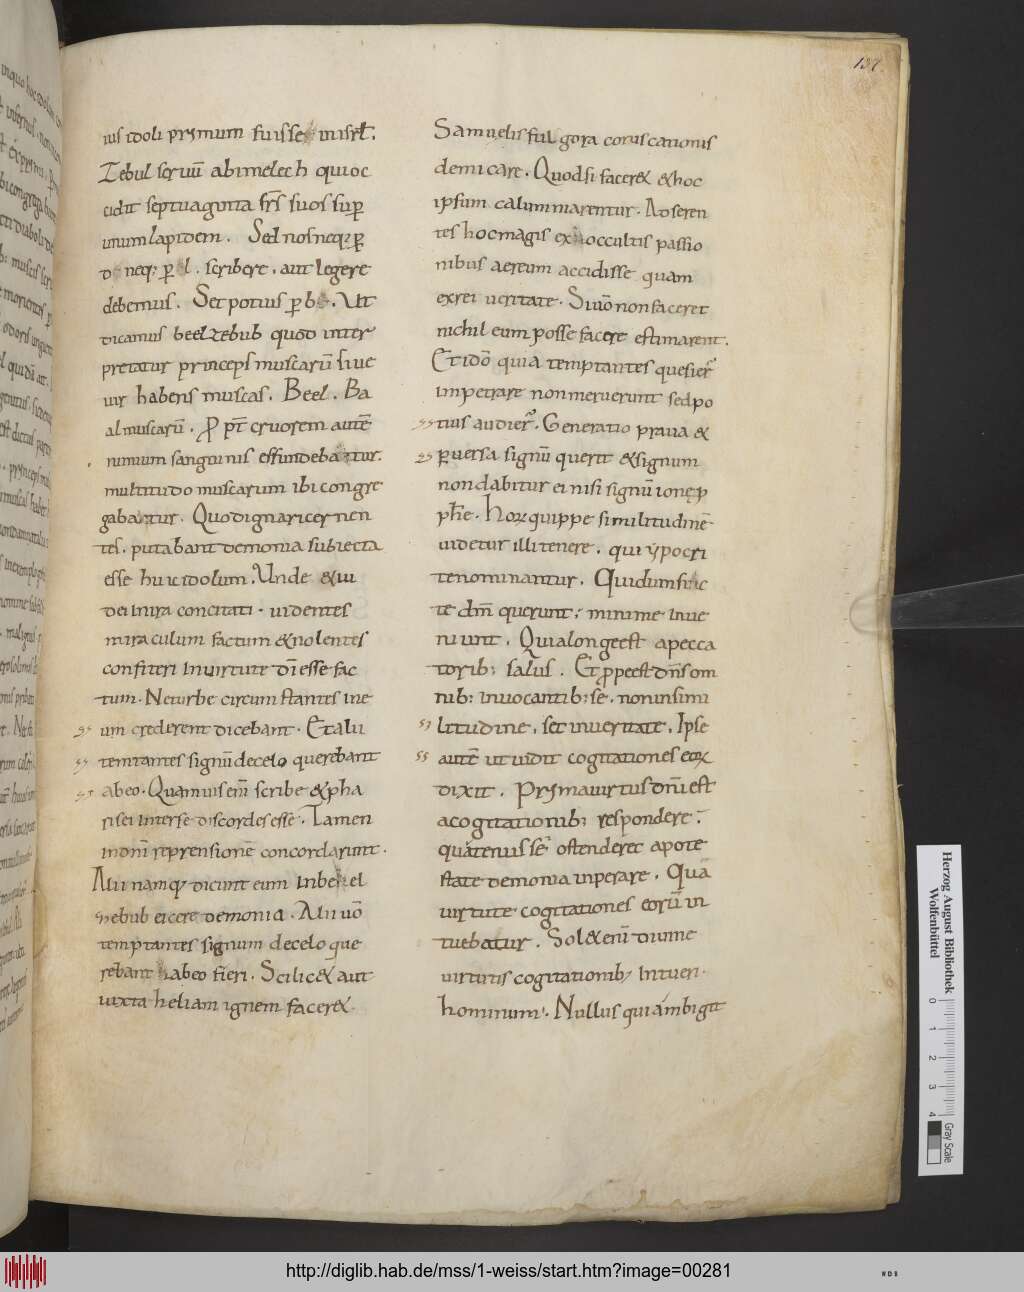 137
ius idoli prymum fuisse in isrł.
Zebul seruū abimelech qui oc
cidit septuaginta fr̄s suos sup̱
unum lapidem. Sed nos neq; p̱
d neq; p̱ l. scribere. aut legere
debemus. Set potius p̱ b. Ut
dicamus beelzebub quod inter
pretatur princeps muscarū siue
uir habens muscas. Beel. Ba
al muscarū. P̱ pt̄ cruorem autē
nimium sanguinis effundebatur.
multitudo muscarum ibi congre
gabatur. Quod ignari cernen
tes. putabant demonia subiecta
esse huic idolum. Unde & iu
dei in ira concitati. uidentes
miraculum factum & nolentes
confiteri in uirtute dī esse fac
tum. Ne turbe circum stantes in e
um crederent dicebant. Et alii
temtantes signū de celo querebant
ab eo. Quamuis em̄ scribe & pha
risei inter se discordes essē. Tamen
in dnī reprensionē concordarunt.
Alii namq; dicunt eum in beel
zebub eicere demonia. Alii uō
temptantes signum de celo que
rebant ab eo fieri. Scilic& aut
iuxta heliam ignem facer&.
Samuelis fulgora coruscationis
demicare. Quod si facer& & hoc
ipsum calumniarentur. Adseren
tes hoc magis ex occultis passio
nibus aereum accidisse quam
ex rei ueritate. Si uō non faceret
nichil eum posse facere estimarent.
Et idō quia temptantes quesier̄
impetrare non meruerunt sed po
tius audier̄. Generatio praua &
p̱uersa signū querit & signum
non dabitur ei nisi signū ionę p
phe. Horum quippe similitudinē
uidetur illi tenere. qui ypocri
te nominantur. Qui dum fic
te dm̄ querunt; minime inue
niunt. Quia longe est a pecca
torib; salus. Et ꝓpe est dn̄s om
nib; inuocantib; se. non in simi
litudine. set in ueritate. Ipse
autē ut uidit cogitationes eorum
dixit. Pryma uirtus dnī est
a cogitationib; respondere.
quatenus se ostenderet a pote
state demonia inperare. Qua
uirtute cogitationes eorū in
tuebatur. Sol& enī diuine
uirtutis cogitationib; intueri
hominum. Nullus qui ambigit
Herzog August Bibliothek
Wolfenbüttel
0 1 2 3 4
Gray Scale
http://diglib.hab.de/mss/1-weiss/start.htm?image=00281